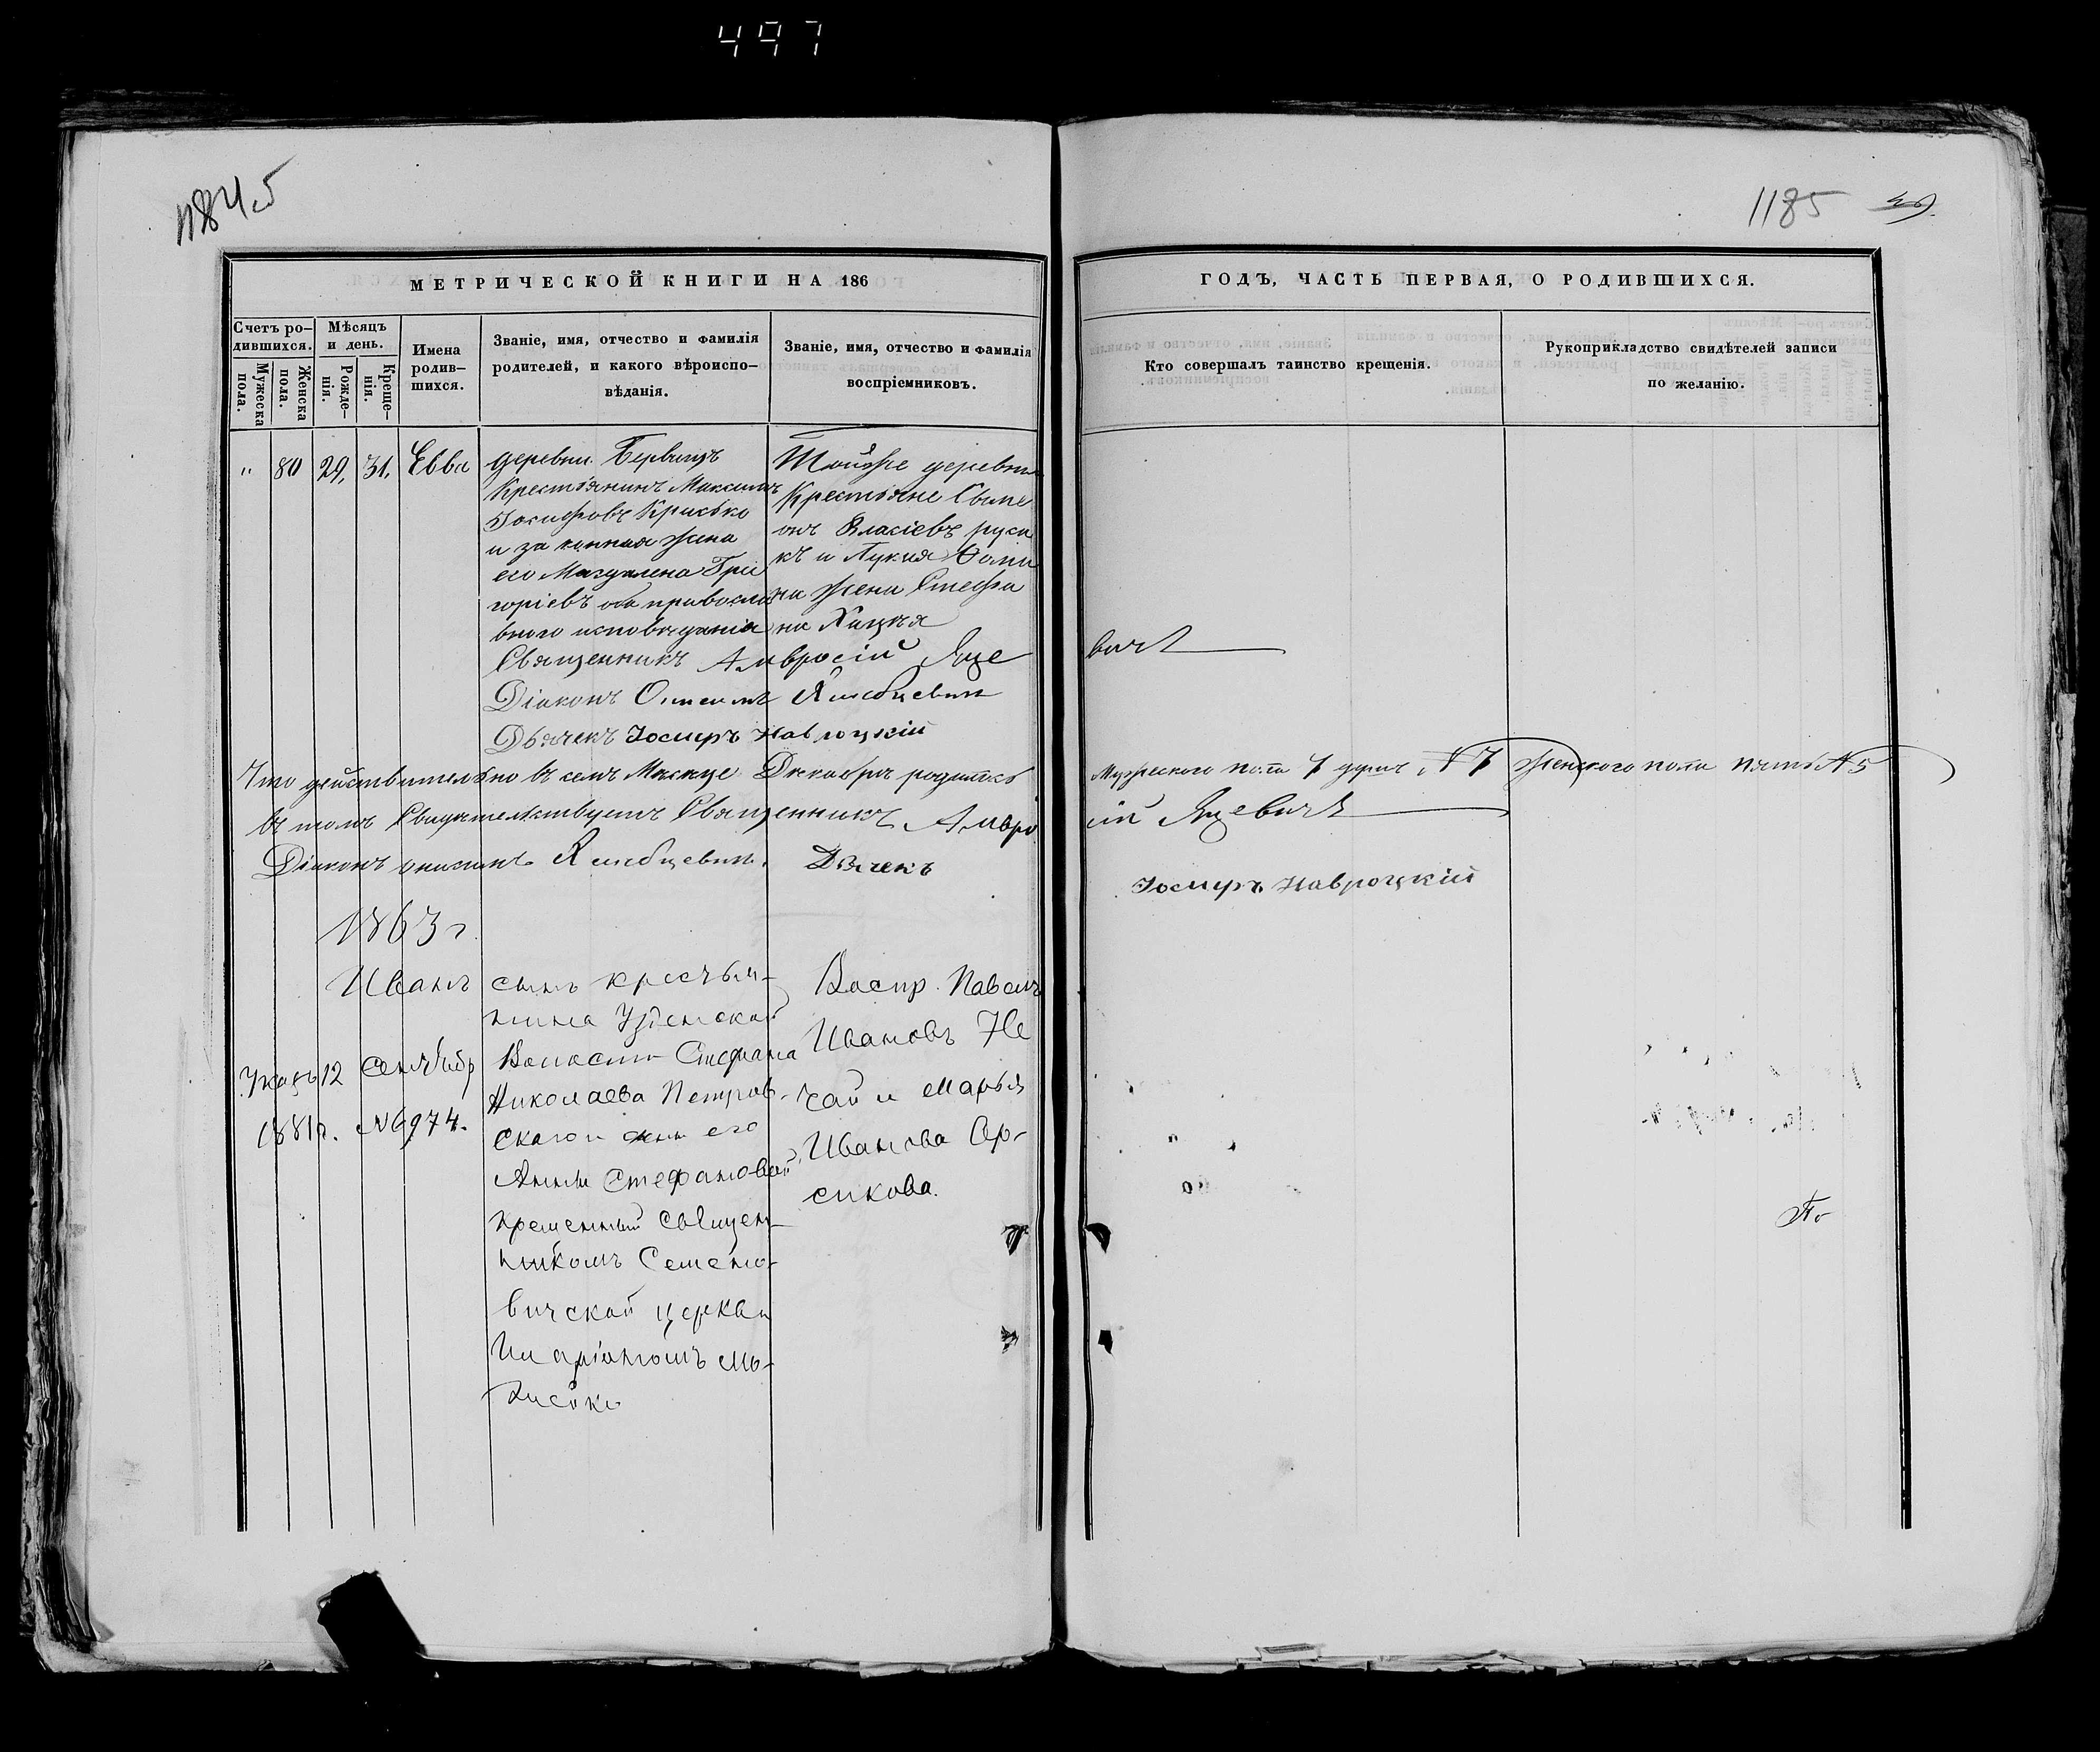 497
1184об
1185
МЕТРИЧЕСКОЙ КНИГИ НА 186
ГОДЪ, ЧАСТЬ ПЕРВАЯ, О РОДИВШИХСЯ.
Счетъ ро-
дившихся.
Мужеска
пола.
Женска
пола.
Мѣсяцъ
и день.
Рожде-
нія.
Креще-
нія.
Имена
родив-
шихся.
Званіе, имя, отчество и фамилія
родителей, и какого вѣроиспо-
вѣданія.
Званіе, имя, отчество и фамилія
воспріемниковъ.
Кто совершалъ таинство крещенія.
Рукоприкладство свидѣтелей записи
по желанію.
" 80 29, 31, Евва
деревни
Крестьянинъ Максимъ
Іосифовъ Крисько
и законная жена
его Магдалена Гри
горіевъ оба правосла
внаго исповѣданія
Тойже деревни
Крестьяне Симе
онъ Власіевъ руса
къ и Лукія Ѳоми
на жена Стефа
на
Священникъ Амвросій Яце
вичъ
Діаконъ Онисимъ
Дьячекъ Іосифъ Навроцкій
Что действительно въ семъ Месяце Декабре родилось
Мужескаго пола 7 душъ № 7 Женского пола пять № 5
въ томъ Свидѣтельствуетъ Священникъ Амвро
сій Яцевичъ
Діаконъ онисимъ
Дьячекъ
Іосифъ Навроцкій
1863 г.
Иванъ
Указъ 12 Сентября
1881 г. № 6974.
сынъ крестья-
нина
Волости Стефана
Николаева Петров-
скаго и жены его
Анны Стефановой
крещенный священ-
никомъ Семено-
вичской церкви
Иларіономъ
Воспр. Павелъ
Ивановъ Не
чай и Марья
Иванова Ор-
сикова.
По